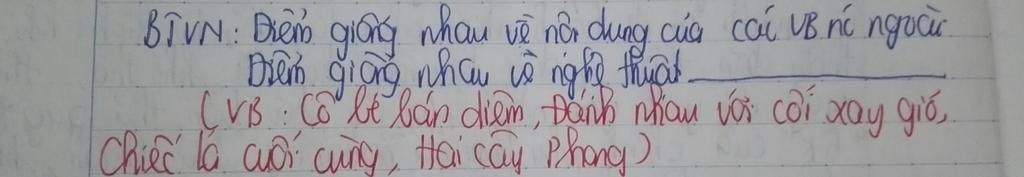 BTVN: Điểm giống nhau về nội dung của các VB nc ngoài
Điểm giống nhau về nghệ thuật
(VB: Cô bé bán diêm, Đánh nhau với cối xay gió,
Chiếc lá cuối cùng, Hai cây Phong)